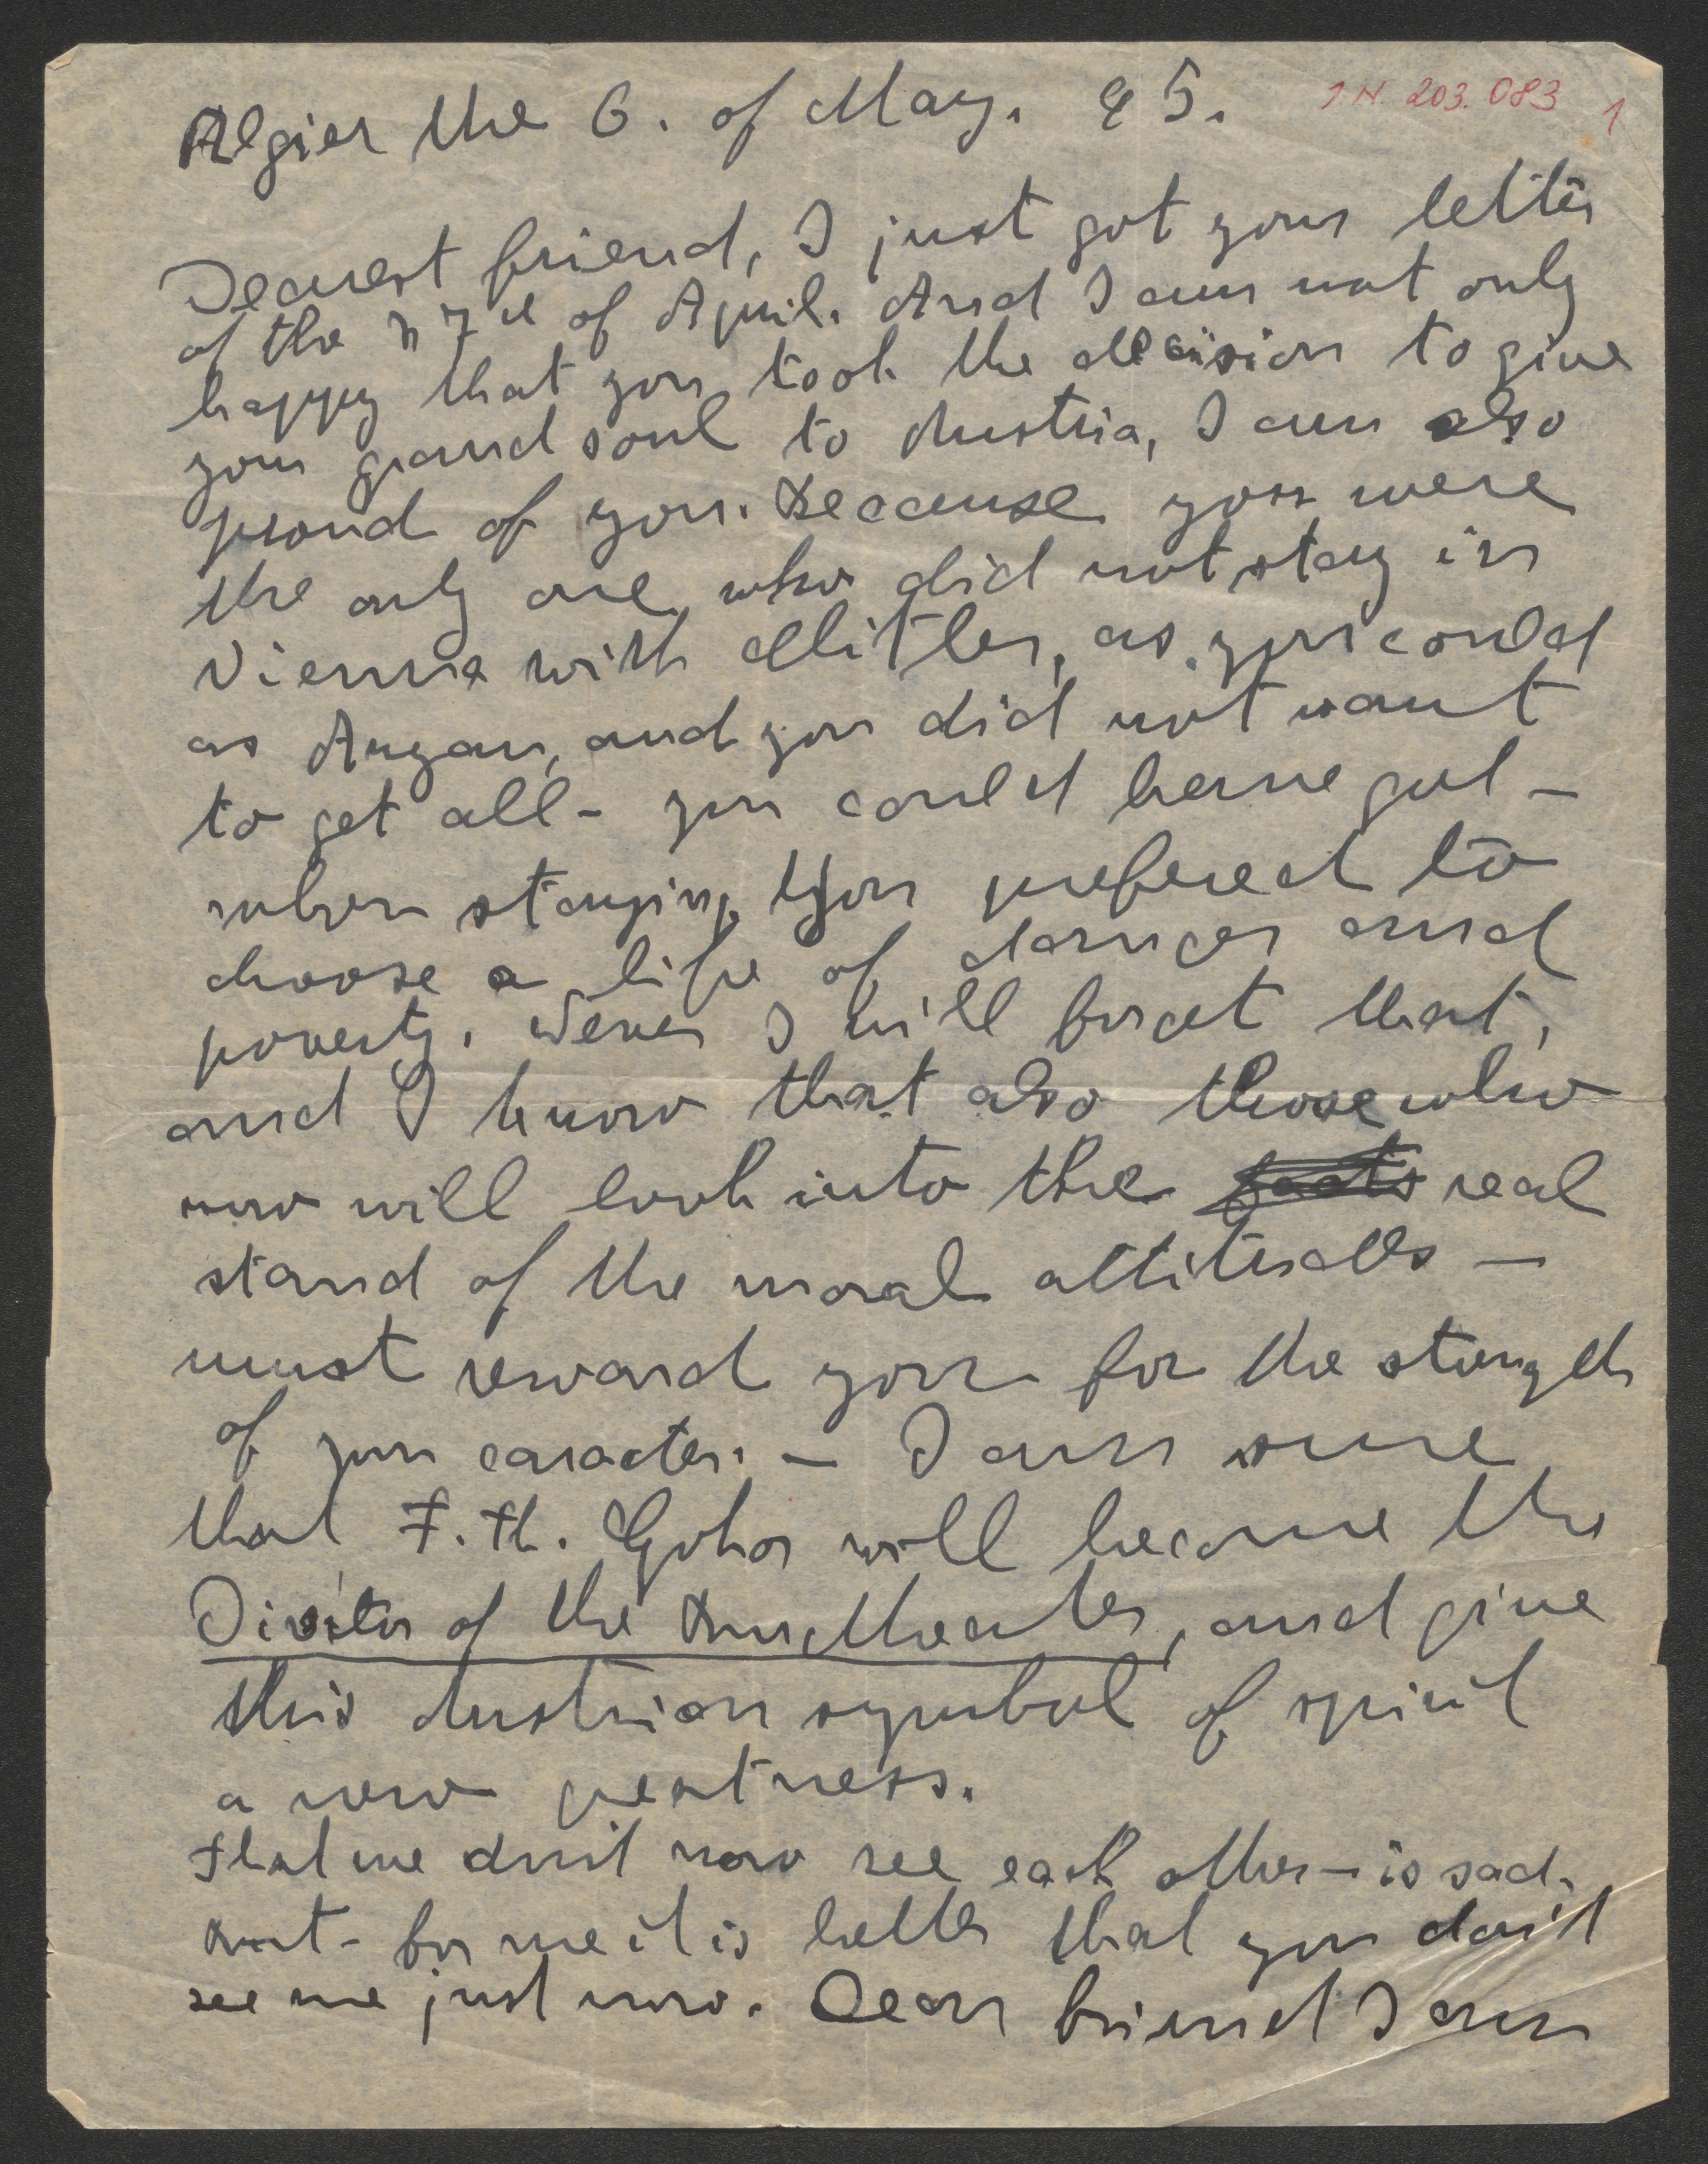 Algier the 6. of May. 45.
I.N. 203.083 1
Dearest friend, I just got your letter
of the 27th of April. And I am not only
happy that you took the decision to give
your grand soul to Austria, I am also
proud of you. Because you were
the only one who did not stay in
Vienna with Hitler, as you could
as Aryan, and you did not want
to get all - you could have got -
when staying. You prefered to
choose a life of danger and
poverty. Never I will forget that,
and I know that also those who
now will look into the facts real
stand of the moral attitudes -
must reward you for the strength
of your caracter. - I am sure
that F. Th. Csokor will become the
Director of the Burgtheater, and give
this Austrian symbol of spirit
a new greatness.
That we don't now see each other - is sad.
But - for me it is better that you don't
see me just now. Dear friend I am